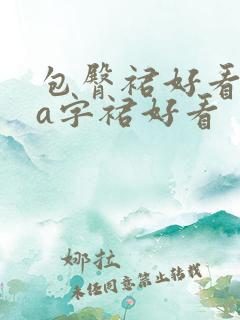 包臀裙好看
a字裙好看
娜拉
未经同意禁止转载